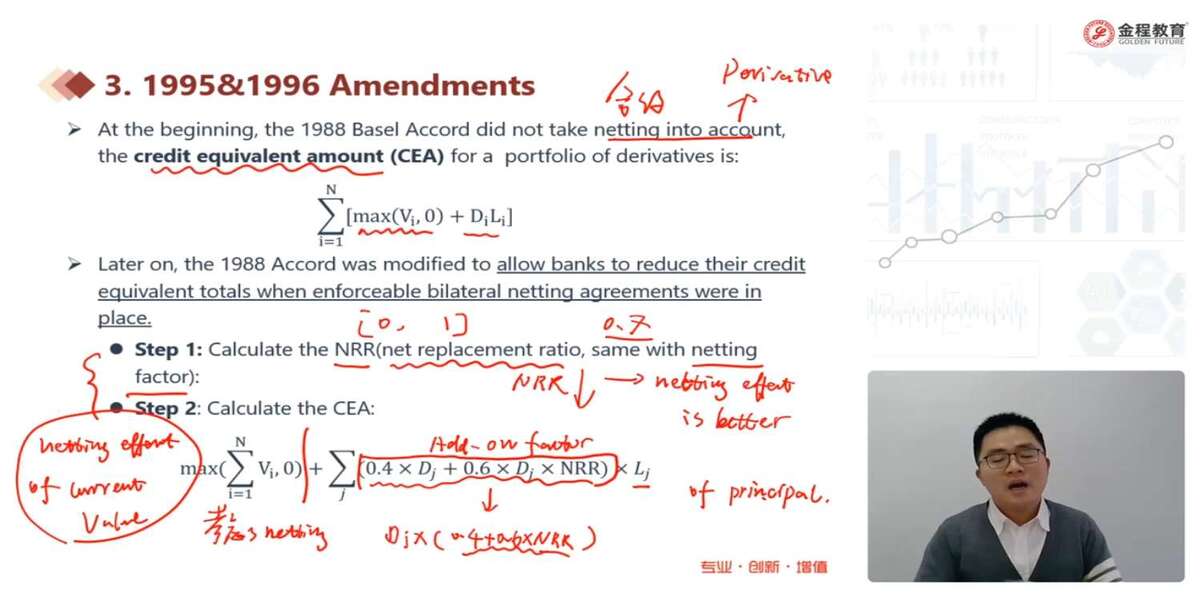 金程教育
GOLDEN FUTURE
3. 1995&1996 Amendments
合约
Derivative
At the beginning, the 1988 Basel Accord did not take netting into account,
the credit equivalent amount (CEA) for a portfolio of derivatives is:
N
∑[max(Vᵢ, 0) + DᵢLᵢ]
i=1
Later on, the 1988 Accord was modified to allow banks to reduce their credit
equivalent totals when enforceable bilateral netting agreements were in
place.
[0, 1]
0.7
Step 1: Calculate the NRR(net replacement ratio, same with netting
factor):
NRR ↓ → netting effect
is better
Step 2: Calculate the CEA:
netting effect
of current
value
Add-on factor
N
max(∑Vᵢ, 0) + ∑(0.4 × Dⱼ + 0.6 × Dⱼ × NRR) × Lⱼ
i=1
j
of principal.
考虑了netting
Dj×(0.4+0.6×NRR)
专业·创新·增值